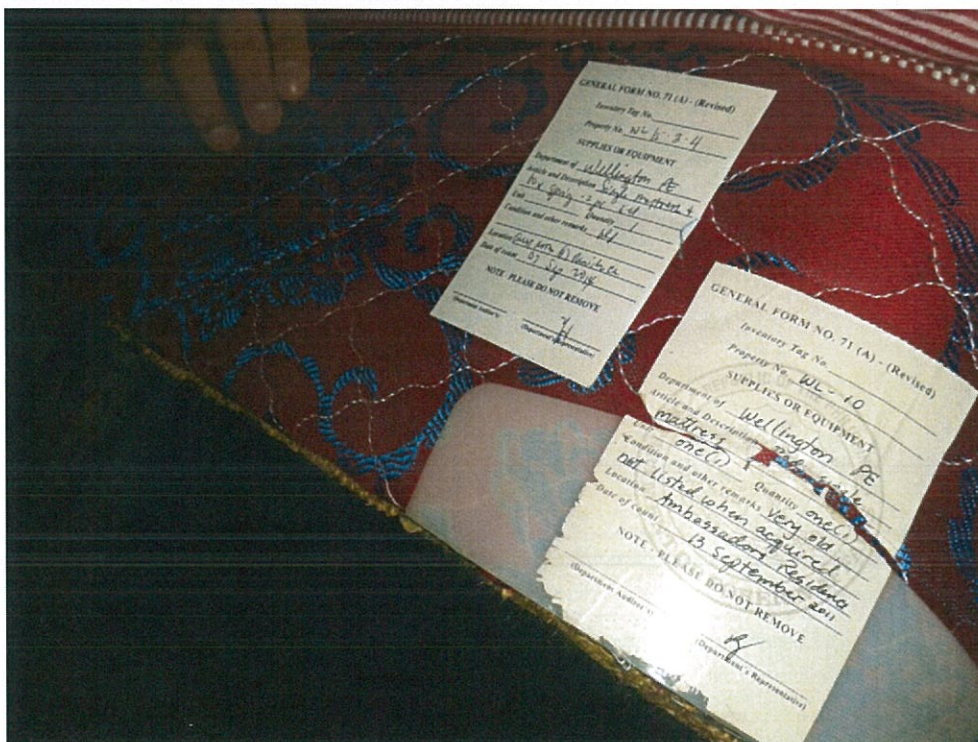 GENERAL FORM NO. 71 (A) - (Revised)
Inventory Tag No.
Property No. WL 15-3-4
SUPPLIES OR EQUIPMENT
Department of Wellington PE
Article and Description Single mattress &
Box Spring
Unit Quantity 1
Condition and other remarks
Location
Date of count 07 Sep
NOTE - PLEASE DO NOT REMOVE
(Department Auditor's)
(Department's Representative)
GENERAL FORM NO. 71 (A) - (Revised)
Inventory Tag No.
Property No. WL-10
SUPPLIES OR EQUIPMENT
Department of Wellington PE
Article and Description
mattress
Unit one(1) Quantity one(1)
Condition and other remarks Very old
Not listed when acquired
Location Ambassador's Residence
Date of count 13 September 2011
NOTE - PLEASE DO NOT REMOVE
(Department Auditor's)
(Department's Representative)